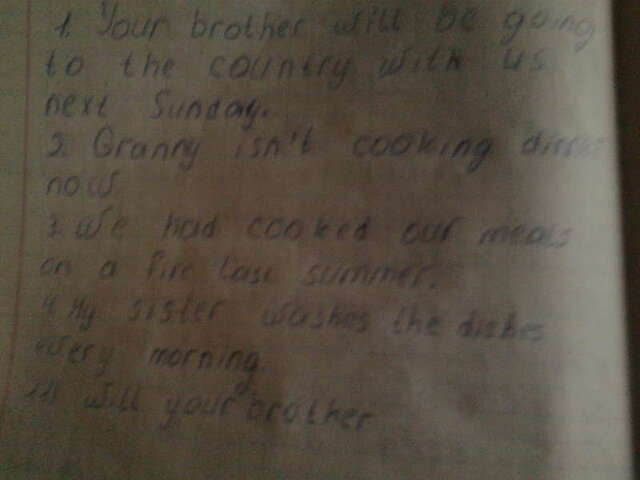 1. Your brother will be going
to the country with us
next Sunday.
2. Granny isn't cooking
now
3. We had cooked our meals
on a fire last summer.
4. My sister washes the dishes
every morning.
will your brother